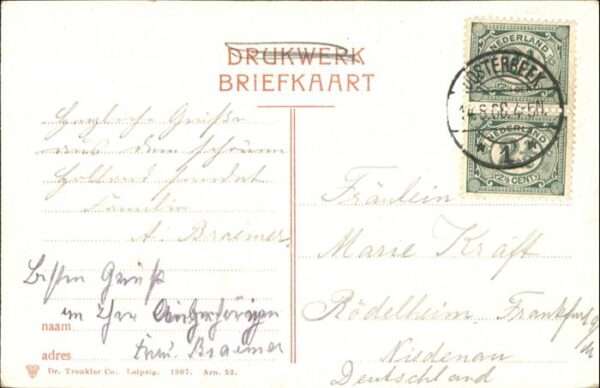 DRUKWERK
BRIEFKAART
NEDERLAND
OOSTERBEEK
NEDERLAND
2½ CENT
Herzliche Grüße
aus dem schönen
Holland sendet
Familie
A. Braemer.
Besten Gruß
an Ihre Angehörigen
Frau. Braemer
naam
adres
Fräulein
Marie Kräft
Rödelheim. Frankfurt a/M
Niedenau
Deutschland
Dr. Trenkler Co., Leipzig. 1907. Arn. 52.